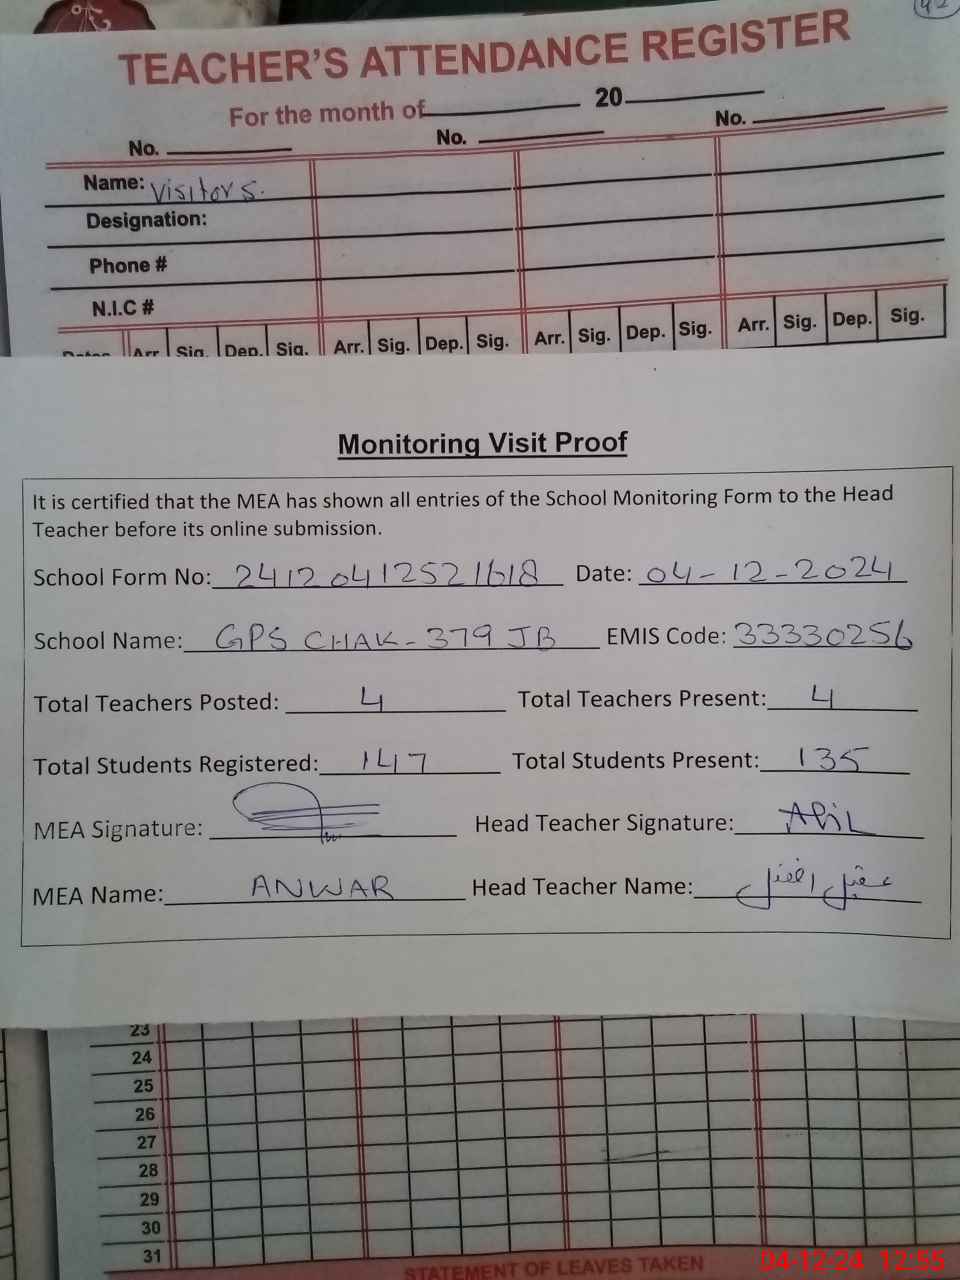 42
TEACHER'S ATTENDANCE REGISTER
For the month of 20
No. No. No.
Name: Visitors.
Designation:
Phone #
N.I.C #
Dates Arr. Sig. Dep. Sig. Arr. Sig. Dep. Sig. Arr. Sig. Dep. Sig. Arr. Sig. Dep. Sig.
Monitoring Visit Proof
It is certified that the MEA has shown all entries of the School Monitoring Form to the Head
Teacher before its online submission.
School Form No: 24120412521618 Date: 04-12-2024
School Name: GPS CHAK-379 JB EMIS Code: 33330256
Total Teachers Posted: 4 Total Teachers Present: 4
Total Students Registered: 147 Total Students Present: 135
MEA Signature: Head Teacher Signature:
MEA Name: ANWAR Head Teacher Name:
23
24
25
26
27
28
29
30
31
STATEMENT OF LEAVES TAKEN
04-12-24 12:55